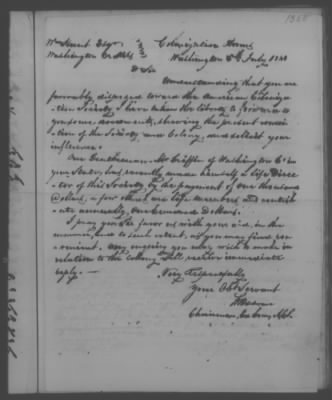 Wm Hunt Esqr
Colonization Rooms
Washington Co Miss
Washington 8th July 1841
D Sir
Understanding that you are
favorably disposed toward the American Coloniza-
tion Society, I have taken the liberty to forward to
you some documents, showing the present condi-
tion of the Society and Colony, and solicit your
influence.
One Gentleman Mr Griffin of Washington Co in
your State, has recently made himself a Life Direc-
tor of this Society by the payment of one thousand
Dollars, a few others are life members and contrib-
ute annually, one hundred Dollars.
I pray you Sir favor us with your aid, in the
manner, and to such extent, as you may find con-
venient. Any inquiry you may wish to make in
relation to the Colony shall receive immediate
reply.
Very Respectfully
Your Obt Servant
Chairman Ex Com